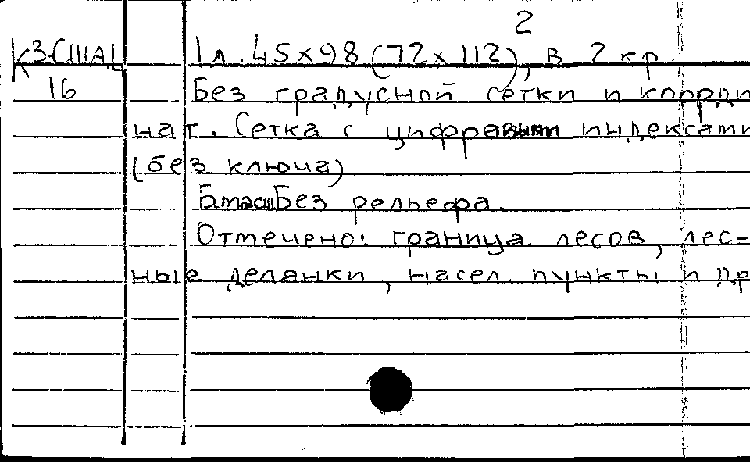 2
К3-США
1 л. 45×98 (72×112), в 2 кр
16
Без градусной сетки и коорди
нат. Сетка с цифровыми индексами
(без ключа)
Без рельефа.
Отмечено: граница лесов, лес=
ные делянки, насел. пункты и др